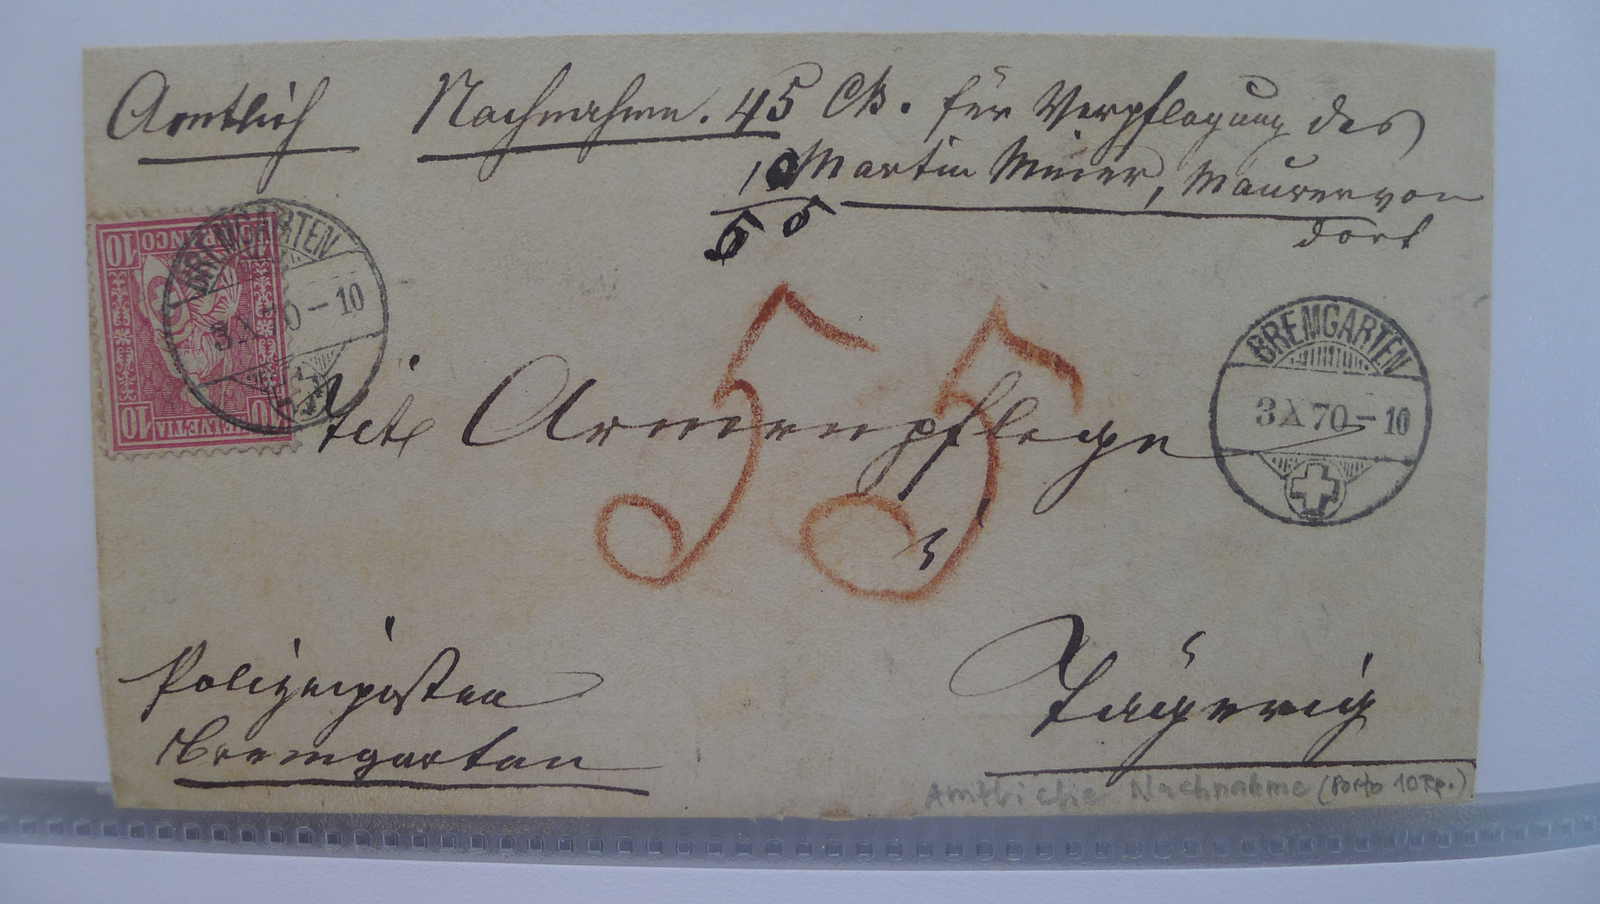 Amtlich Nachnahme. 45 Cts. für Verpflegung des
10 Martin Meier, Maurer von
55 dort
10 FRANCO 10
HELVETIA 10
BREMGARTEN
3 X 70 - 10
BREMGARTEN
3 X 70 - 10
55
Tit. Armenpflege
Polizeiposten
Bremgarten
Tägerig
Amtliche Nachnahme (Porto 10 Rp.)